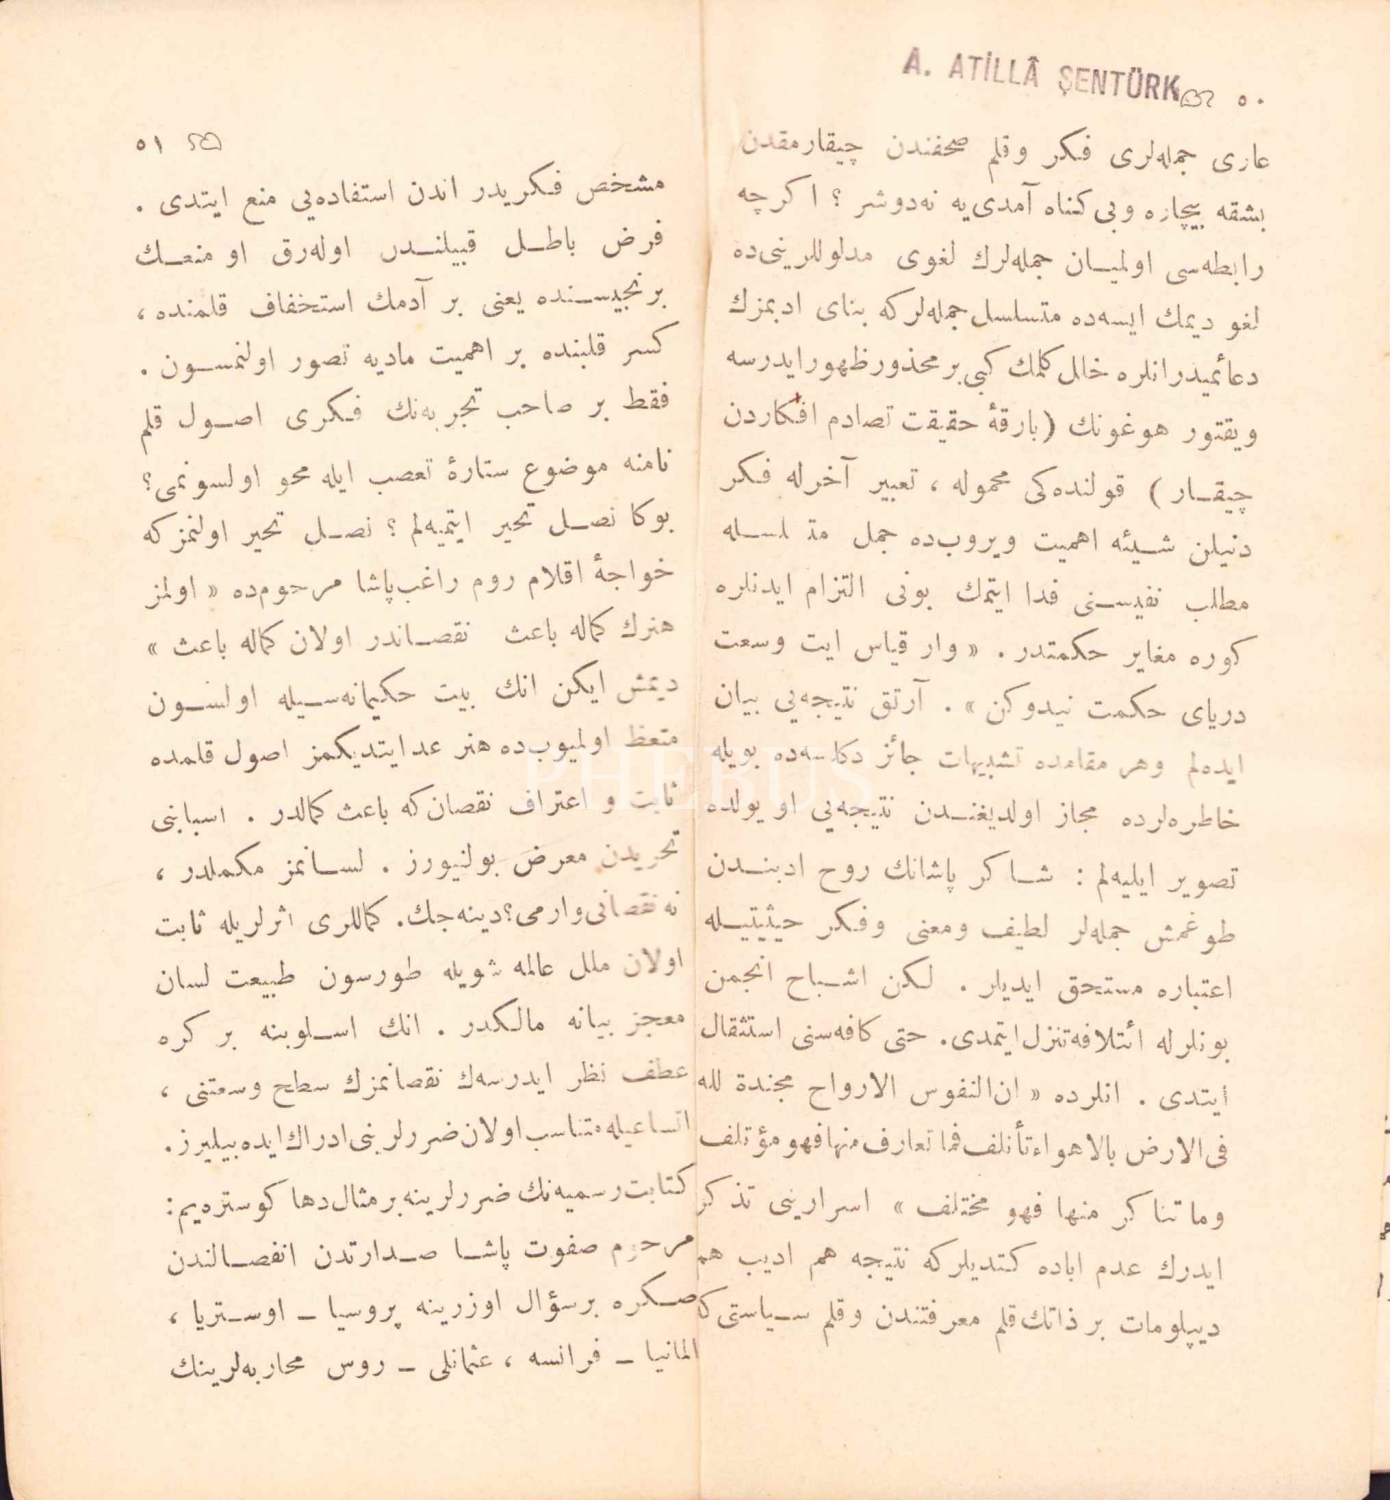 A. ATİLLÂ ŞENTÜRK
٥٠
عاری جمله‌لری فکر وقلم صحفندن چیقارمقدن
بشقه بیچاره وبی کناه آمدی‌یه نه‌دوشر ؟ اکرچه
رابطه‌سی اولمیان جمله‌لرك لغوی مدلوللرینی‌ده
لغو دیمك ایسه‌ده متسلسل جمله‌لرکه بنای ادبمزك
دعائمیدر انلره خلل کلمك کبی بر محذور ظهور ایدرسه
ویقتور هوغونك (بارقهٔ حقیقت تصادم افکاردن
چیقار) قولنده‌کی محموله ، تعبیر آخرله فکر
دنیلن شیئه اهمیت ویروب‌ده جمل متسلسله
مطلب نفیسنی فدا ایتمك بونی التزام ایدنلره
کوره مغایر حکمتدر . « وار قیاس ایت وسعت
دریای حکمت نیدوکن » . آرتق نتیجه‌یی بیان
ایده‌لم وهر مقامده تشبیهات جائز دکلسه‌ده بویله
خاطره‌لرده مجاز اولدیغندن نتیجه‌یی او یولده
تصویر ایلیه‌لم : شاکر پاشانك روح ادبندن
طوغمش جمله‌لر لطیف ومعنی وفکر حیثیتیله
اعتباره مستحق ایدیلر . لکن اشباح انجمن
بونلرله ائتلافه تنزل ایتمدی. حتی کافه‌سنی استثقال
ایتدی . انلرده « ان النفوس الارواح مجندة لله
فی الارض بالاهواء تأتلف فما تعارف منها فهو مؤتلف
وما تناکر منها فهو مختلف » اسرارینی تذکر
ایدرك عدم اباده کتدیلرکه نتیجه هم ادیب هم
دیپلومات بر ذاتك قلم معرفتندن وقلم سیاستی که
٥١
مشخص فکریدر اندن استفاده‌یی منع ایتدی .
فرض باطل قبیلندن اوله‌رق او منعك
برنجیسنده یعنی بر آدمك استخفاف قلمنده ،
کسر قلبنده بر اهمیت مادیه تصور اولنمسون .
فقط بر صاحب تجربه‌نك فکری اصول قلم
نامنه موضوع ستارهٔ تعصب ایله محو اولسونمی؟
بوکا نصل تحیر ایتمیه‌لم ؟ نصل تحیر اولنمزکه
خواجهٔ اقلام روم راغب پاشا مرحوم‌ده « اولمز
هنرك کماله باعث نقصاندر اولان کماله باعث »
دیمش ایکن انك بیت حکیمانه‌سیله اولسون
متعظ اولمیوب‌ده هنر عد ایتدیکمز اصول قلمده
ثابت و اعتراف نقصان که باعث کمالدر . اسبابنی
تحریدن معرض بولنیورز . لسانمز مکملدر ،
نه نقصانی وارمی؟ دینه‌جك. کماللری اثرلریله ثابت
اولان ملل عالمه شویله طورسون طبیعت لسان
معجز بیانه مالکدر . انك اسلوبنه بر کره
عطف نظر ایدرسه‌ك نقصانمزك سطح وسعتنی ،
اتساعیله متناسب اولان ضررلرینی ادراك ایده بیلیرز.
کتابت رسمیه‌نك ضررلرینه بر مثال دها کوستره‌یم:
مرحوم صفوت پاشا صدارتدن انفصالندن
صکره بر سؤال اوزرینه پروسیا ــ اوستریا ،
المانیا ــ فرانسه ، عثمانلی ــ روس محاربه‌لرینك
PHEBUS